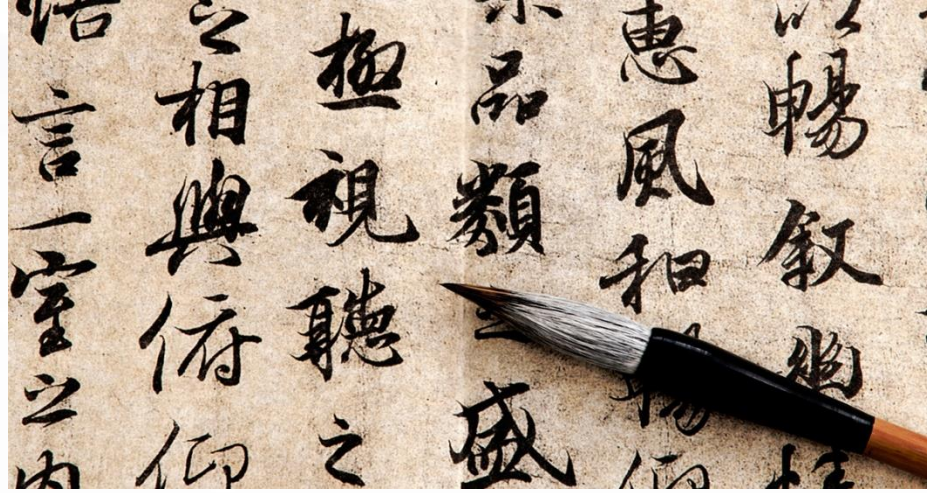 以暢叙幽情
惠風和暢仰
察品類之盛
極視聽之
之相與俯仰
悟言一室之内